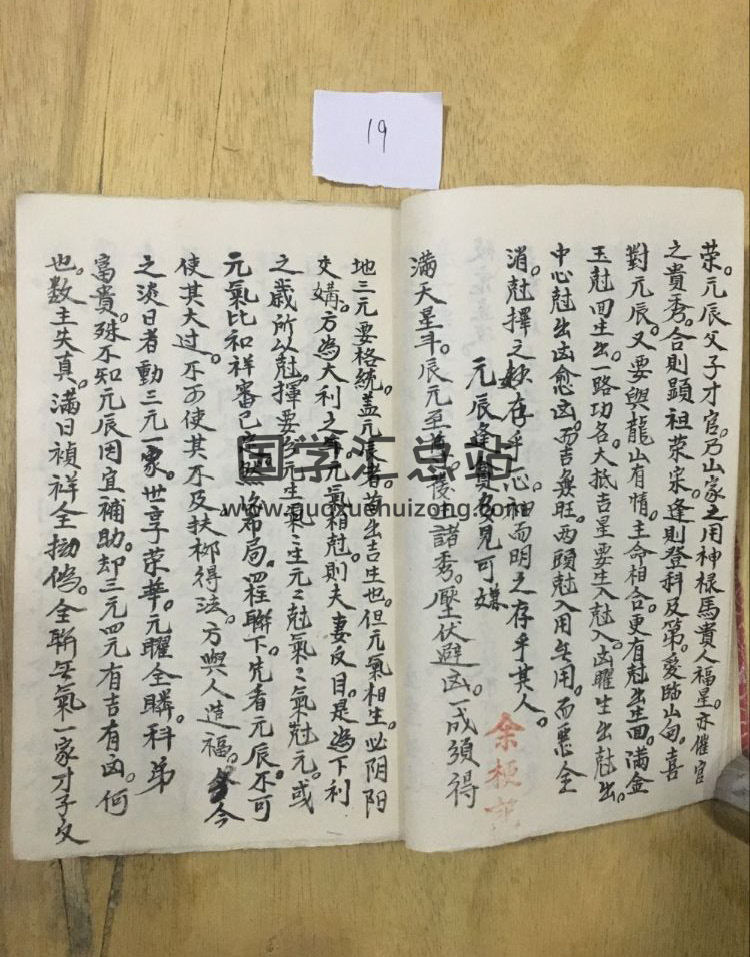 19
荣。元辰父子才官。乃山家之用神。禄馬貴人福星。亦催官
之貴秀。合則顕祖荣宗。逢則登科及第。愛臨山向。喜
對元辰。又要與龍山有情。主命相合。更有尅出生回。滿金
玉尅回生出。一路功名。大抵吉星要生入尅入。凶曜生出尅出。
中心尅出凶愈凶。而吉無旺。两頭尅入用無用。而惡全
消。尅擇之妙存乎一心。神而明之存乎其人。
元辰逢貴多見可嫌
滿天星斗。辰元至尊。諸秀。壓伏避凶。一成須得
余梗記
地三元要格統。盖元辰者。苗出吉生也。但元氣相生。必阴阳
交媾。方為大利之年。元氣相尅。則夫妻反目。是為下利
之歲。所以尅擇要多元生氣。氣生元。元尅氣。氣尅元。或
元氣比和祥審已定。然后布局。四程聯下。先看元辰。不可
使其大过。不可使其不及。扶抑得法。方與人造福。今
之淡日者。動三元一家。世享荣華。元曜全聯。科弟
富貴。殊不知元辰因宜補助。却三元四元有吉有凶。何
也。数主失真。滿日禎祥全拗偽。全斬無氣一家才子父
国学汇总站
www.guoxuehuizong.com